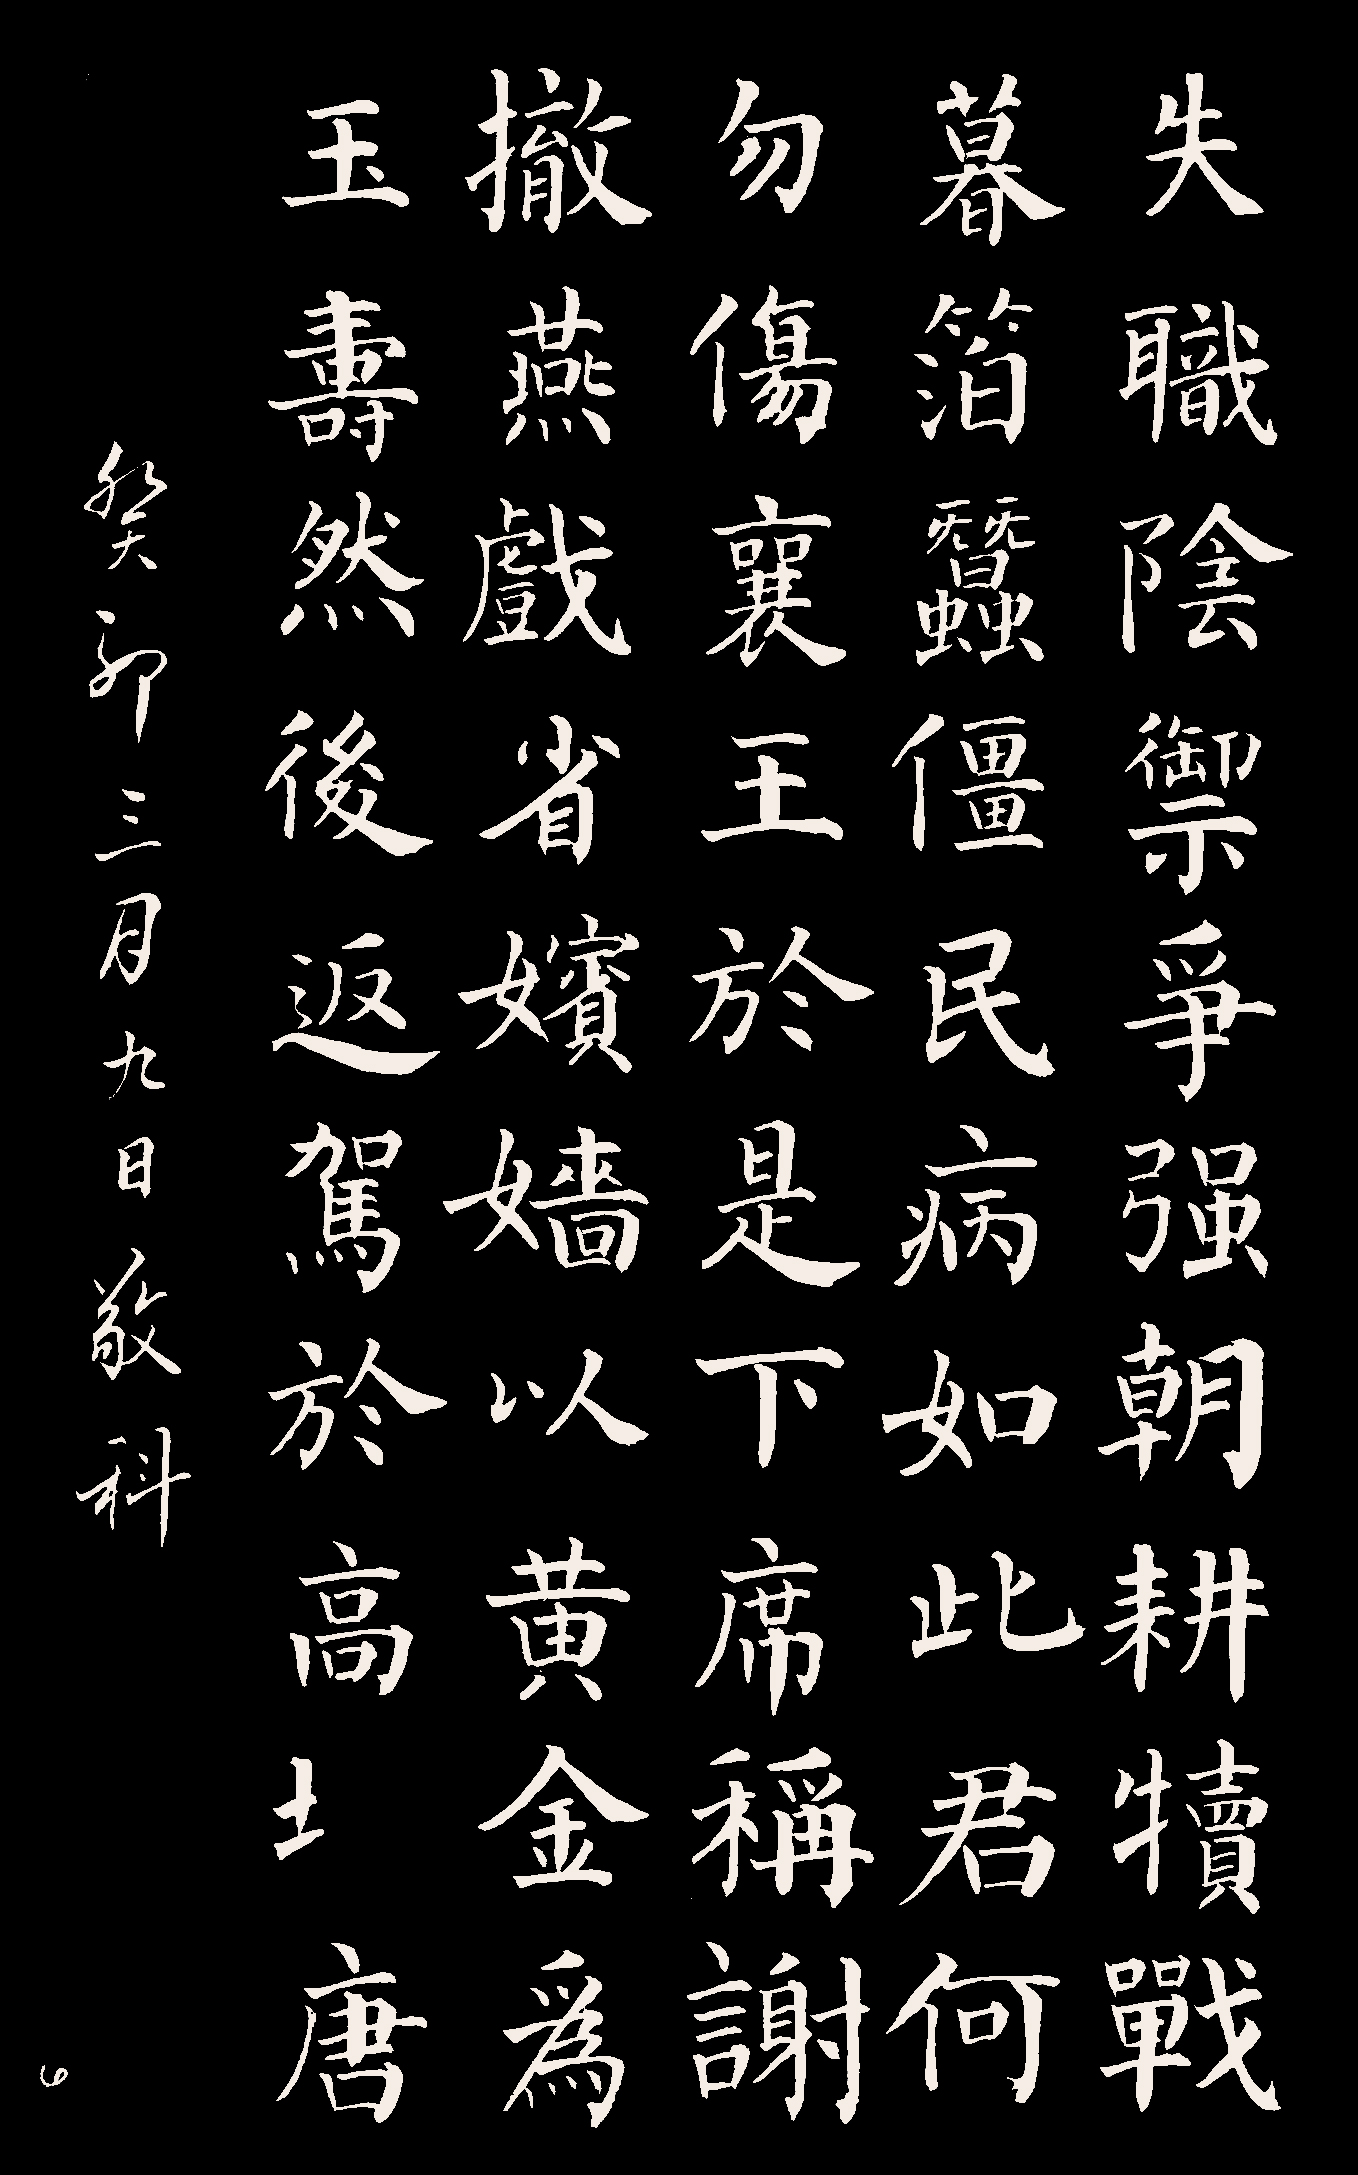 失職陰禦爭强朝耕犢戰
暮箔蠶僵民病如此君何
勿傷襄王於是下席稱謝
撤燕戲省嬪嬙以黄金爲
玉壽然後返駕於高土唐
癸卯三月九日敬科
6